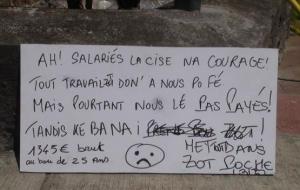 AH! SALARIÉS LA CISE NA COURAGE!
TOUT TRAVAIL DON' A NOUS PO FÉ
MAIS POURTANT NOUS LÉ PAS PAYÉS!
TANDIS KE BANA i
1345€ brut
au bout de 25 Ans
MET DANS
ZOT POCHE